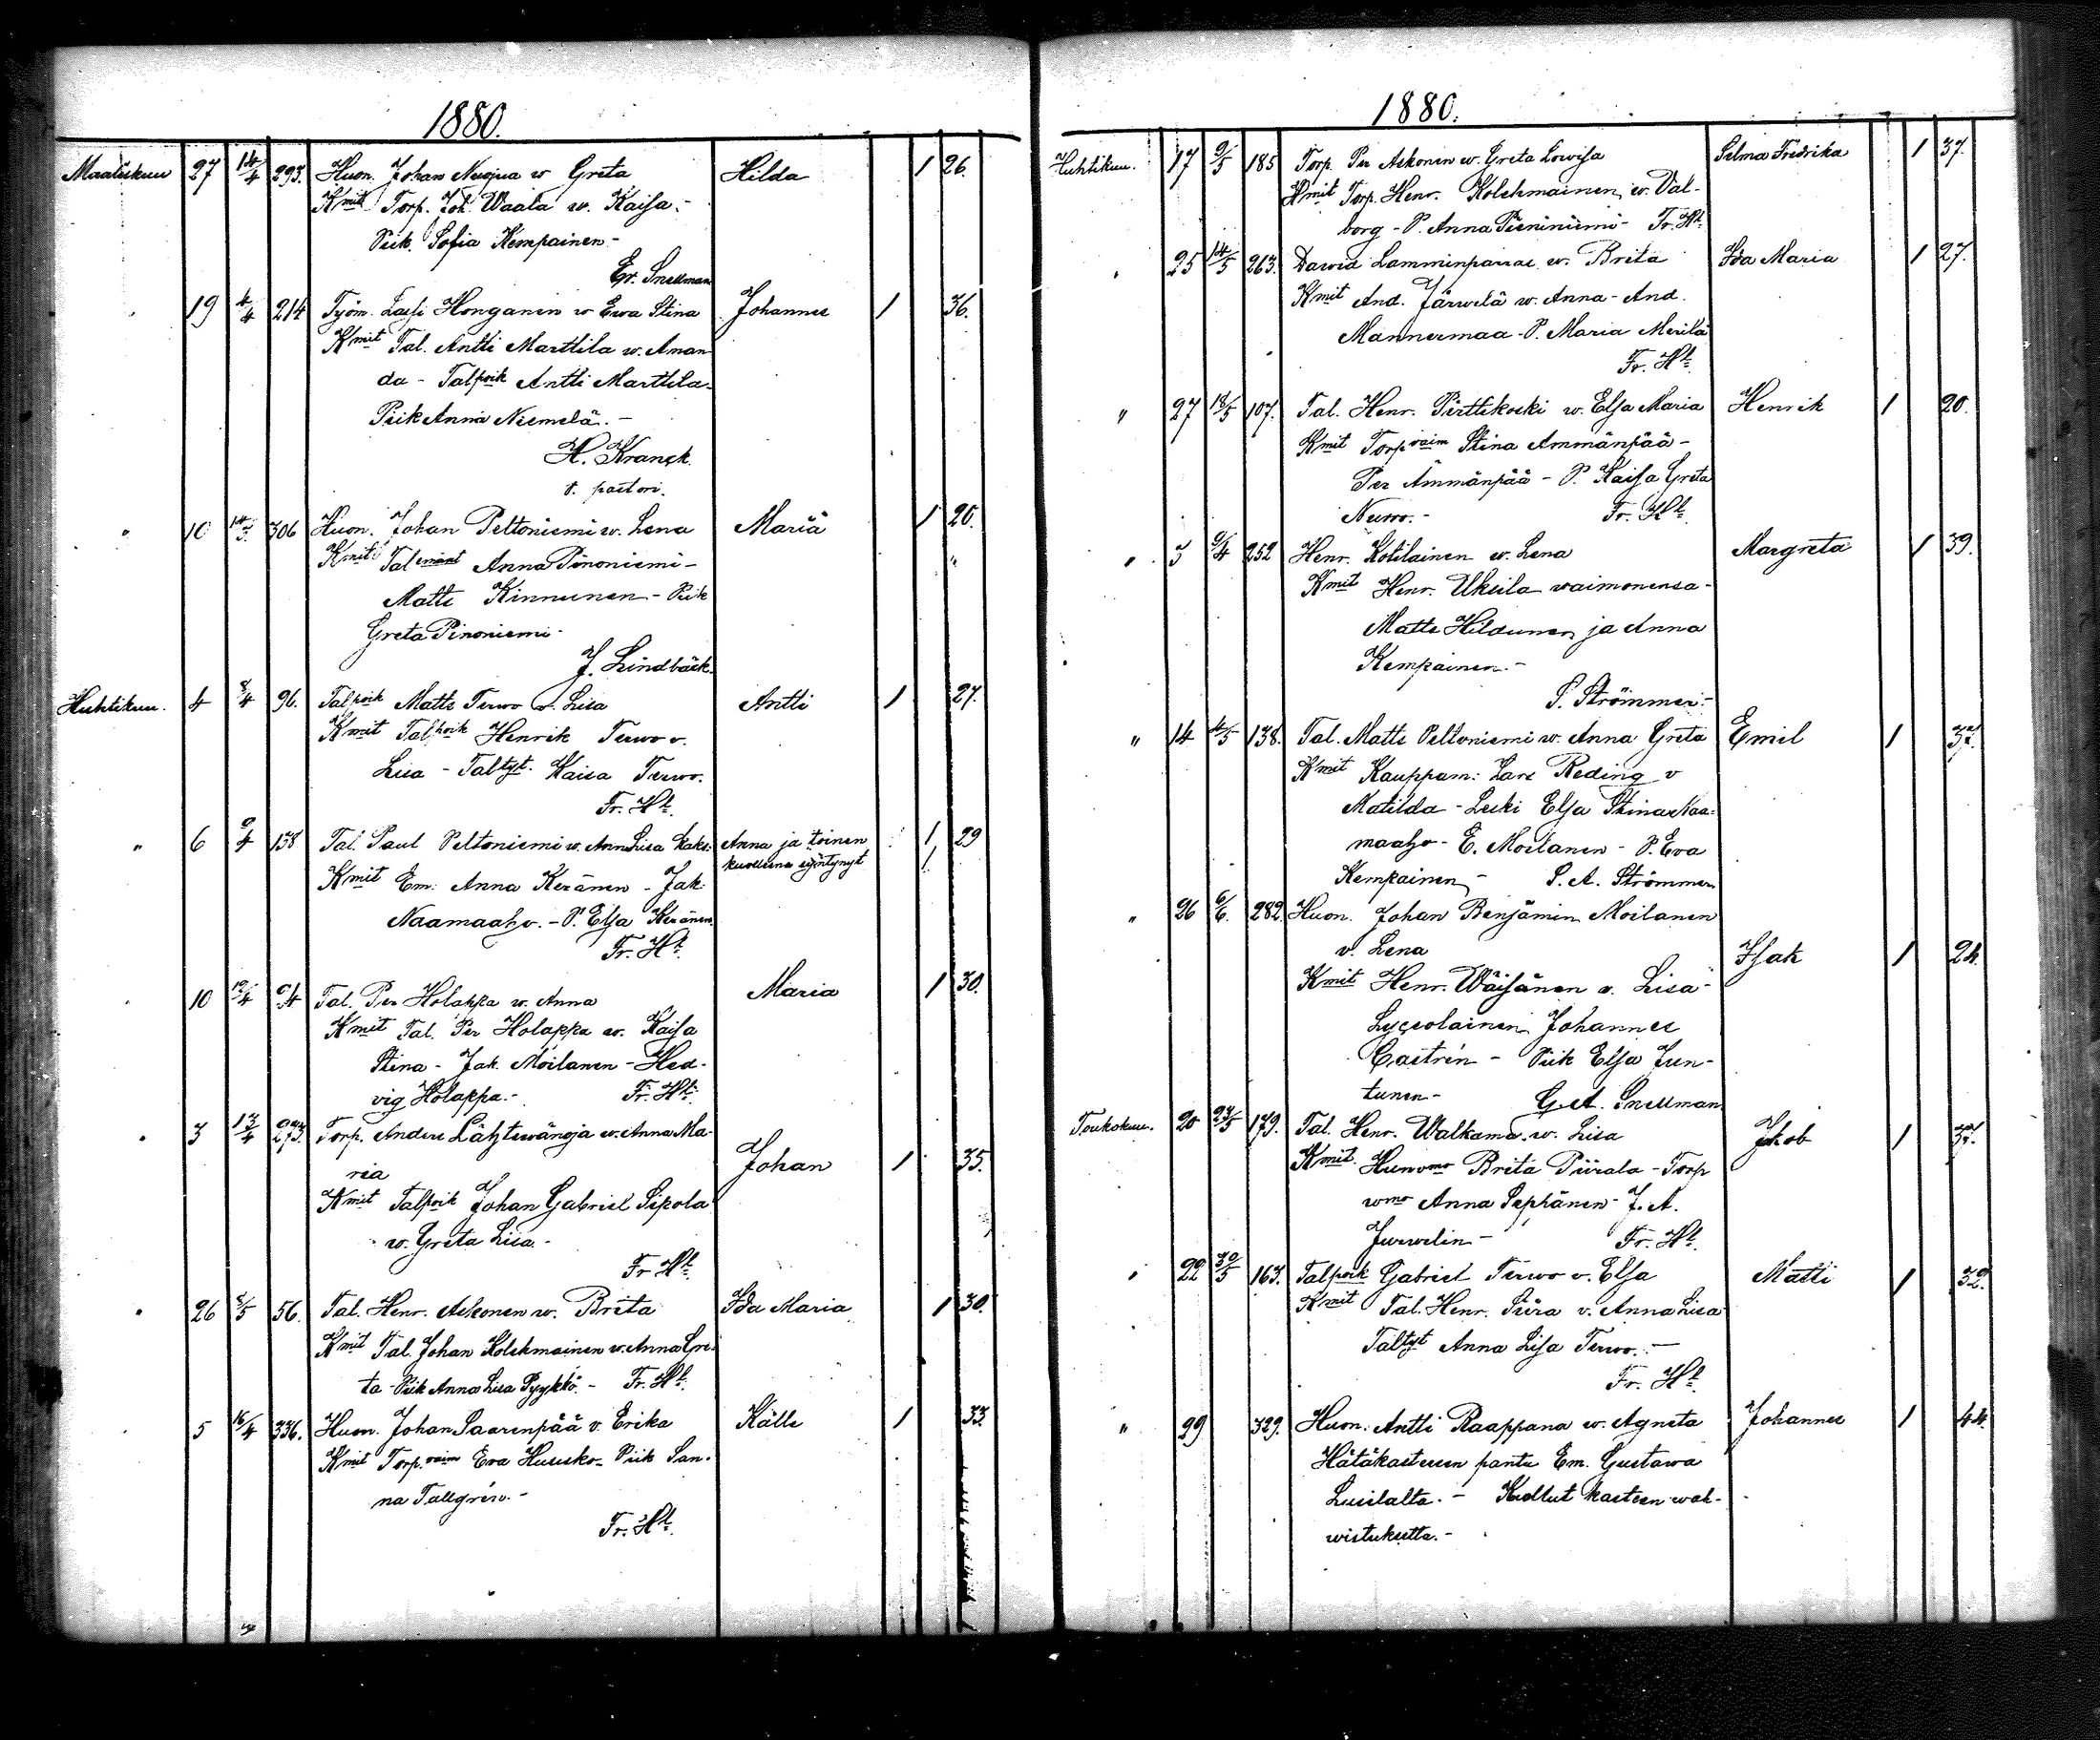 1880.
Maaliskuu 27 14/4 293. Huon. Johan Nuojua w Greta Hilda 1 26.
Kmit Torp. Joh. Waala w. Kaisa.-
Piik. Sofia Kempainen-
Er. Snellman
19 4/4 214 Työm. Lassi Honganen w Ewa Stina Johannes 1 36.
Kmit Tal. Antti Marttila w. Aman
da - Talpoik Antti Marttila-
Piik Anna Niemelä.-
H. Kranck.
v. pastori.
" 10 306 Huon. Johan Peltoniemi w. Lena Maria 1 20.
Kmit Talemänt Anna Pinoniemi-
Matts Kinnunen - Piik
Greta Pinoniemi-
J. Lindbäck.
Huhtikuu. 4 8/4 96. Talpoik Matts Terwo v. Lisa Antti 1 27.
Kmit Talpoik Henrik Terwo v.
Lisa - Taltyt. Kaisa Terwo.
Fr. Hk.
" 6 9/4 138 Tal. Paul Peltoniemi w. Ann Lisa kaks: Anna ja toinen 1 29
kuolleena syntynyt 1
Kmit Em: Anna Keränen - Jak:
Naamaaho. - P. Elsa Keränen
Fr. Hk.
10 12/4 94 Tal. Per Holappa w. Anna Maria 1 30.
Kmit Tal. Per Holappa w. Kaisa
Stina - Jak. Moilanen - Hed-
vig Holappa.- Fr. Hk.
" 3 13/4 273. Torp. Anders Lähtewänoja w. Anna Ma-
ria Johan 1 35.
Kmit Talpoik Johan Gabriel Sipola
w. Greta Lisa.-
Fr Hk.
" 26 8/5 56. Tal. Henr. Askonen w. Brita Ida Maria 1 30.
Kmit Tal. Johan Kolehmainen w. Anna Gre-
ta - Piik Anna Lisa Pyykkö.- Fr. Hk.
5 16/4 336. Huon. Johan Saarenpää v. Erika Kalle 1 33.
Kmit Torp. vaim Eva Huusko- Piik San-
na Tallgrén.-
Fr. Hk.
1880.
Huhtikuu. 17 9/5 185 Torp. Per Askonen w. Greta Lowisa Selma Fredrika 1 37.
Kmit Torp. Henr. Kolehmainen w. Val-
borg - P. Anna Pieniniemi- Fr. Hk.
" 25 14/5 263. Dawid Lamminparras w. Brita Ida Maria 1 27.
Kmit And. Järwelä w. Anna - And.
Mannermaa - P. Maria Merilä
Fr. Hk.
" 27 18/5 107. Tal. Henr. Pirttikoski w. Elsa Maria Henrik 1 20.
Kmit Torpvaim Stina Ämmänpää-
Per Ämmänpää - P. Kaisa Greta
Nurro.- Fr. Hk.
" 3 9/4 252 Henr. Kotilainen w. Lena Margreta 1 39.
Kmit Henr. Ukkila waimonensa-
Matts Hildunen ja Anna
Kempainen.-
S. Strömmer.-
" 14 4/5 138. Tal. Matts Peltoniemi w. Anna Greta Emil 1
Kmit Kauppam: Lars Reding v
Matilda - Leski Elsa Stina Naa-
maaho - E. Moilanen - P. Eva
Kempainen - S. A. Strömmer
" 26 6/6. 282. Huon. Johan Benjamin Moilanen
v. Lena Isak 1 24.
Kmit Henr. Wäisänen v. Lisa-
Lyseolainen Johannes
Castrén - Piik Elsa Jun-
tunen- G. A. Snellman
Toukokuu. 20 23/5 179. Tal. Henr. Walkama. w. Lisa Jakob 1
Kmit Huonvmo Brita Piirala - Torp
wmo Anna Seppänen - J. A.
Jurwelin - Fr. Hk.
" 22 30/5 163. Talpoik Gabriel Terwo v. Elsa Matti 1 32.
Kmit Tal. Henr. Siira v. Anna Lisa
Taltyt Anna Lisa Terwo.-
Fr. Hk.
" 29 329. Huon. Antti Raappana w. Agneta Johannes 1 44.
Hätäkasteesen pantu Em. Gustawa
Lusilalta.- Kuollut kasteen wah-
wistuksetta.-